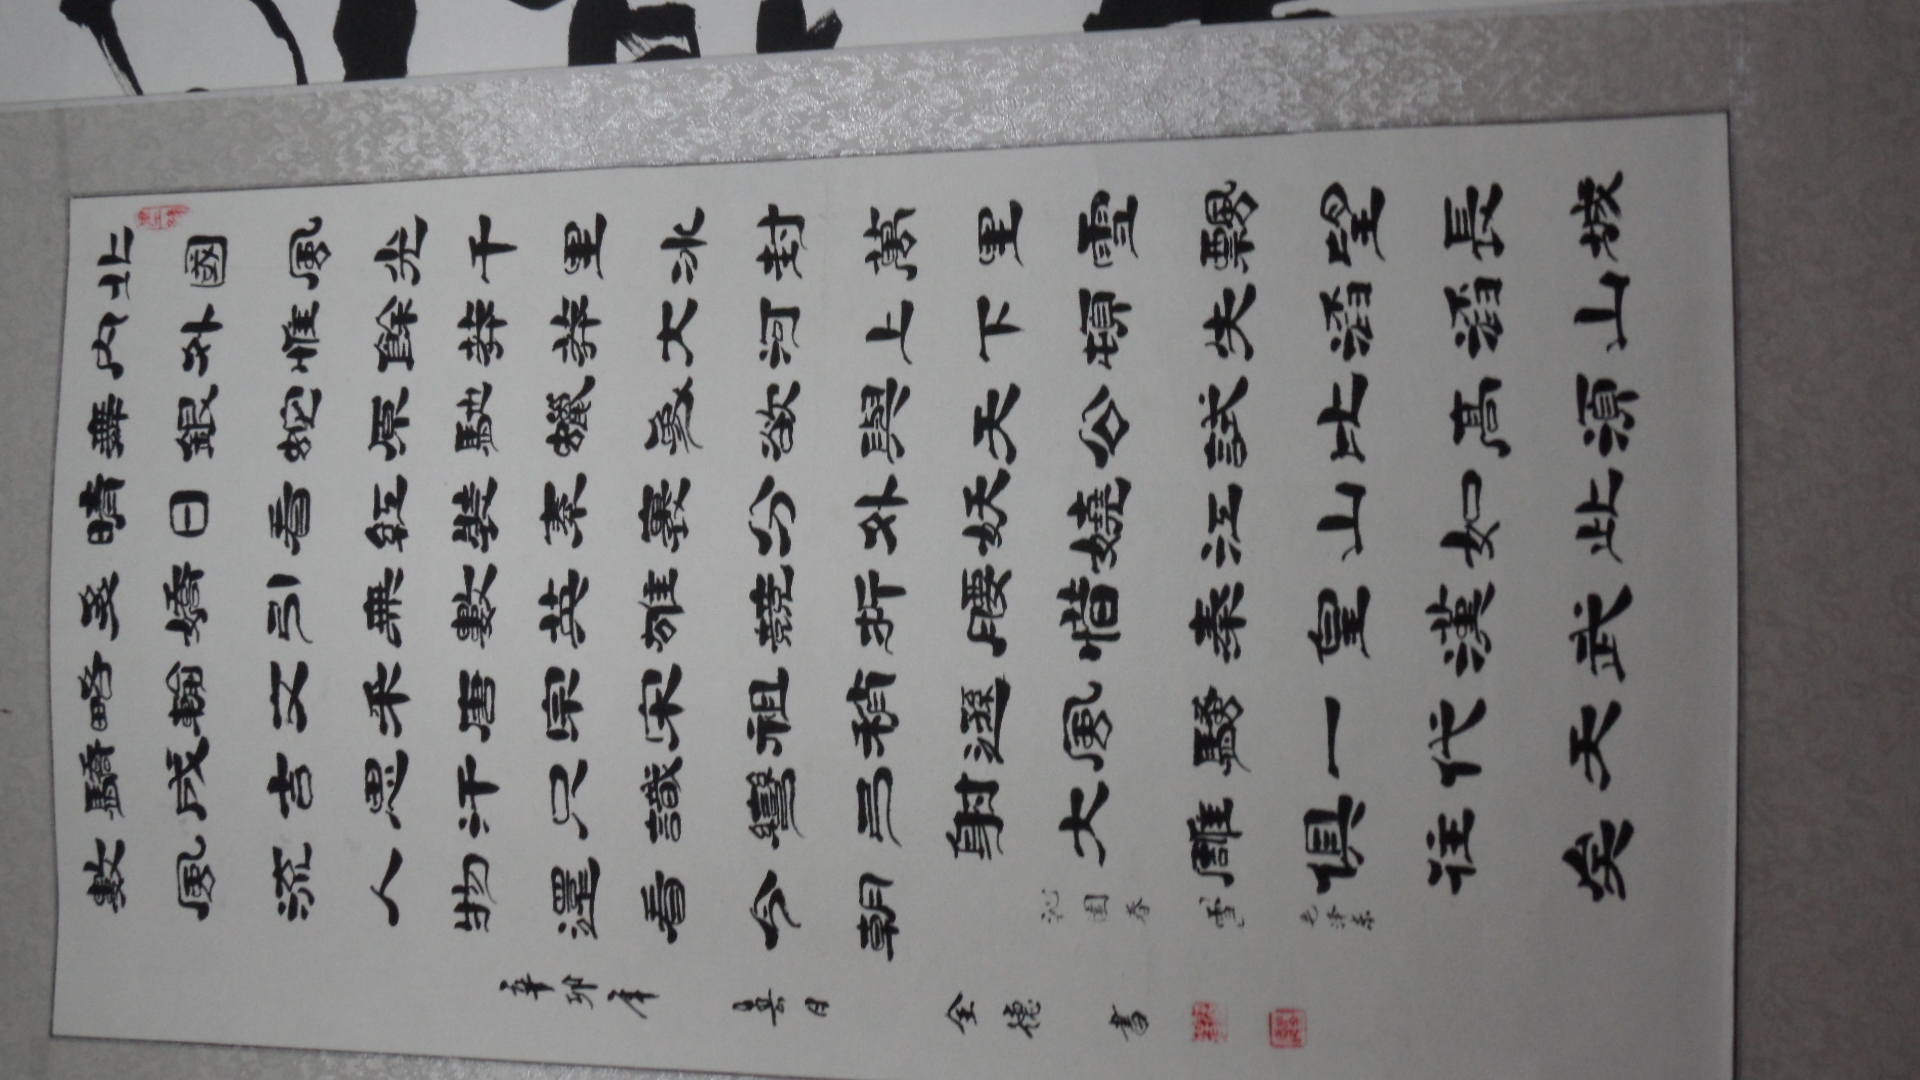 北國風光千里冰封萬里雪飄望長城
內外惟餘莽莽大河上下頓失滔滔山
舞銀蛇原馳蠟象欲與天公試比高須
晴日看紅裝素裹分外妖嬈江山如此
多嬌引無數英雄競折腰惜秦皇漢武
略輸文采唐宗宋祖稍遜風騷一代天
驕成吉思汗只識彎弓射大雕俱往矣
數風流人物還看今朝 沁園春 雪 毛泽东
辛卯年 日 全德 書